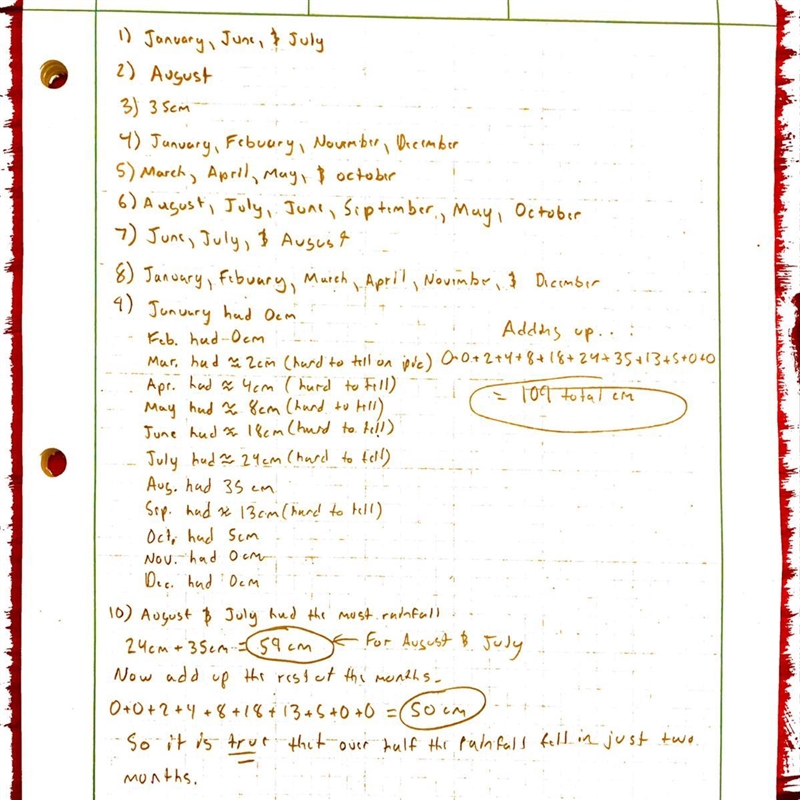 1) January, June, & July
2) August
3) 35cm
4) January, Febuary, November, December
5) March, April, May, & october
6) August, July, June, September, May, October
7) June, July, & August
8) January, Febuary, March, April, November, & December
9) January had 0cm
Feb. had 0cm
Mar. had ≈ 2cm (hard to tell on pic)
Apr. had ≈ 4cm (hard to tell)
May had ≈ 8cm (hard to tell)
June had ≈ 18cm (hard to tell)
July had ≈ 24cm (hard to tell)
Aug. had 35 cm
Sep. had ≈ 13cm (hard to tell)
Oct. had 5cm
Nov. had 0cm
Dec. had 0cm
Adding up..:
0+0+2+4+8+18+24+35+13+5+0+0
= 109 total cm
10) August & July had the most rainfall
24cm + 35cm = 59cm ← For August & July
Now add up the rest of the months.
0+0+2+4+8+18+13+5+0+0 = 50cm
So it is true that over half the rainfall fell in just two
months.